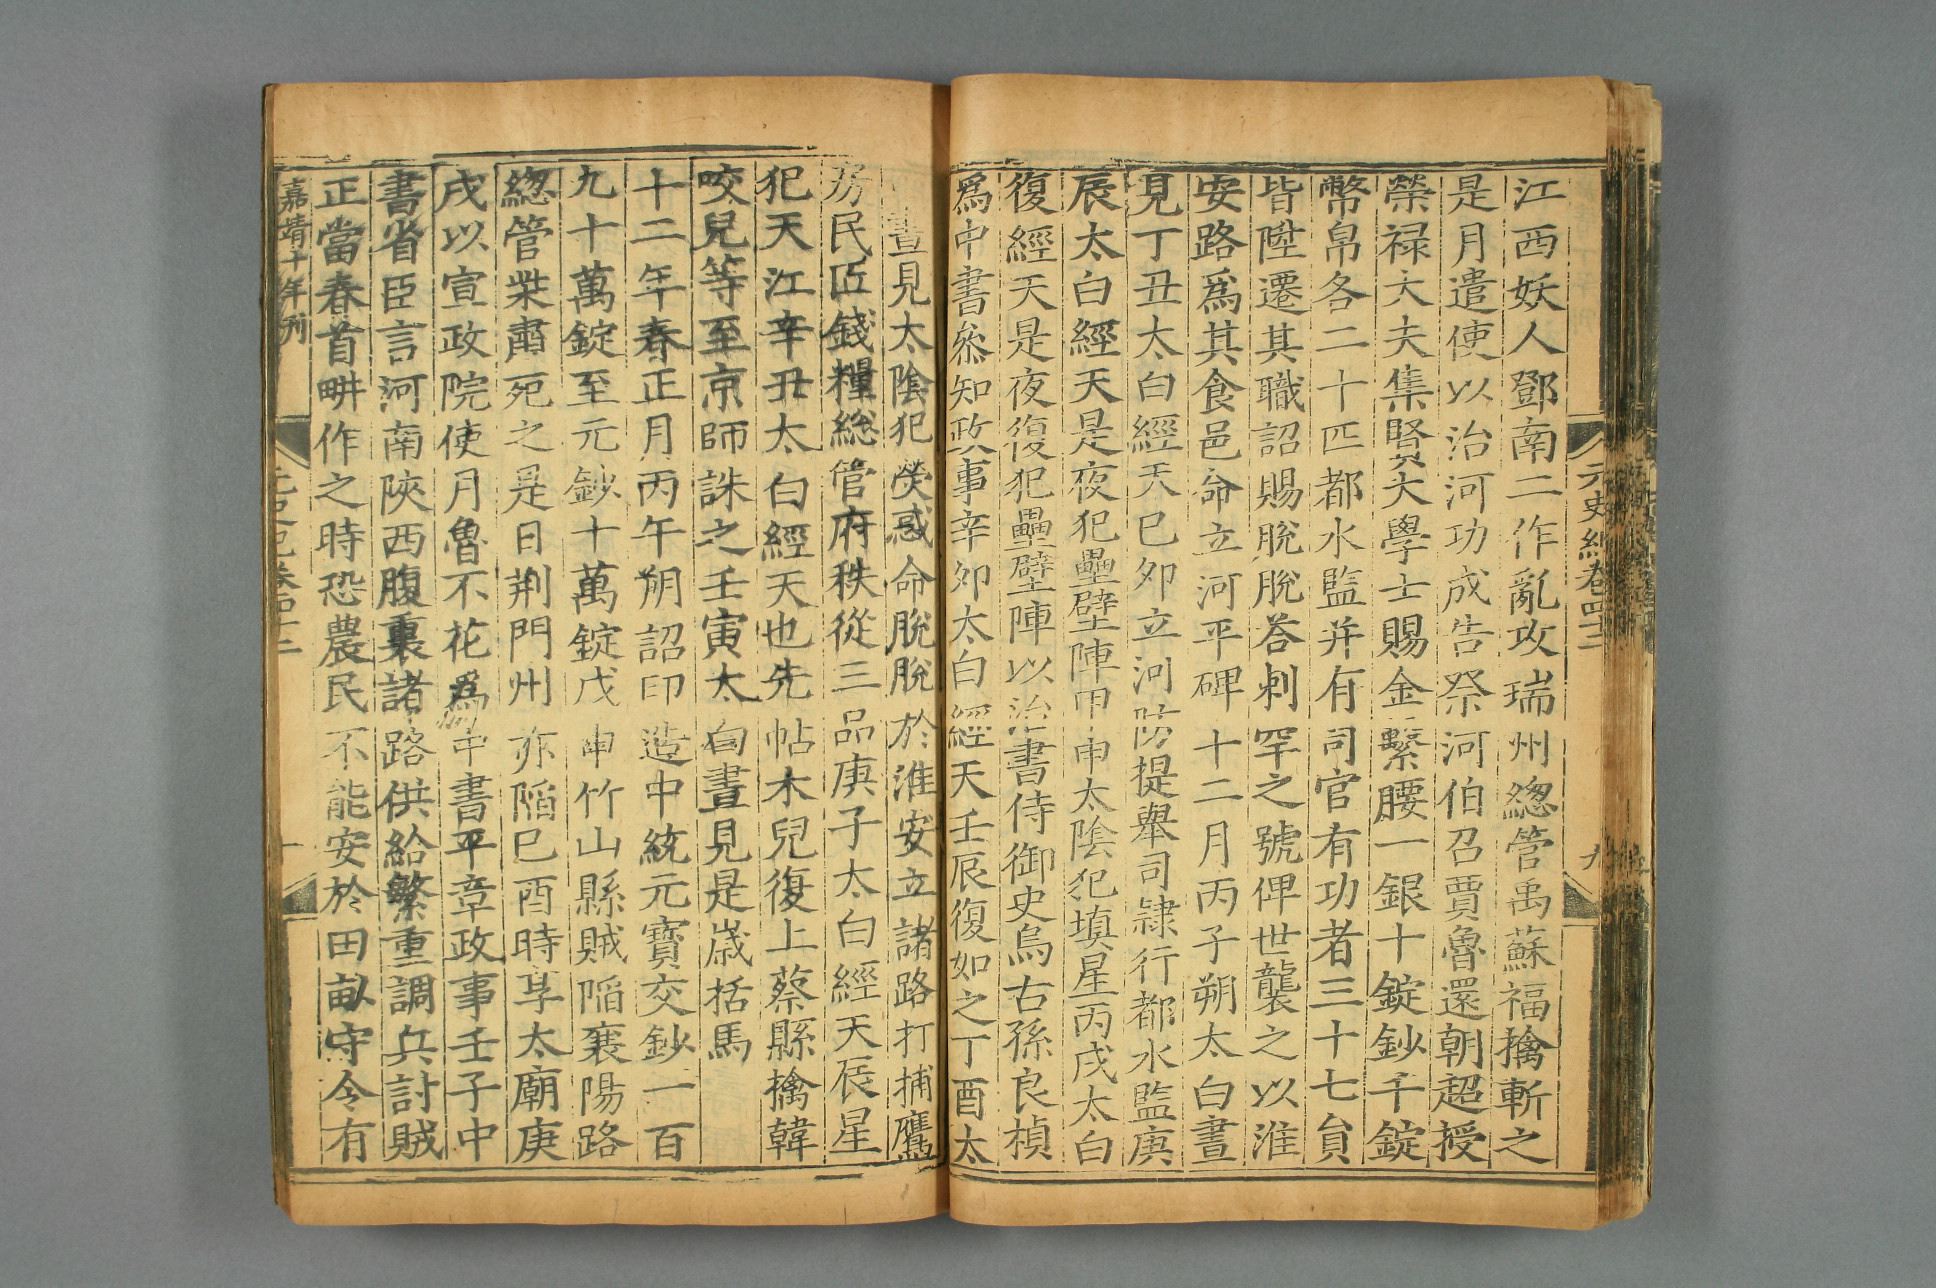 元史紀卷四十二
九
江西妖人鄧南二作亂攻瑞州緫管禹蘇福擒斬之
是月遣使以治河功成告祭河伯召賈魯還朝超授
榮禄大夫集賢大學士賜金繫腰一銀十錠鈔千錠
幣帛各二十匹都水監并有司官有功者三十七貟
皆陞遷其職詔賜脫脫荅剌罕之號俾世襲之以淮
安路爲其食邑命立河平碑十二月丙子朔太白晝
見丁丑太白經天巳夘立河防提舉司隷行都水監庚
辰太白經天是夜犯壘壁陣甲申太陰犯填星丙戌太白
復經天是夜復犯壘壁陣以治書侍御史烏古孫良楨
爲中書叅知政事辛夘太白經天壬辰復如之丁酉太
晝見太陰犯熒惑命脫脫於淮安立諸路打捕鷹
房民匠錢糧総管府秩從三品庚子太白經天辰星
犯天江辛丑太白經天也先帖木兒復上蔡縣擒韓
咬兒等至京師誅之壬寅太白晝見是歲括馬
十二年春正月丙午朔詔印造中統元寳交鈔一百
九十萬錠至元鈔十萬錠戊申竹山縣賊陷襄陽路
緫管柴肅死之是日荆門州亦陷巳酉時享太廟庚
戌以宣政院使月魯不花爲中書平章政事壬子中
書省臣言河南陜西腹裏諸路供給繁重調兵討賊
正當春首畊作之時恐農民不能安於田畝守令有
嘉靖十年刋
元史紀卷四十二
十